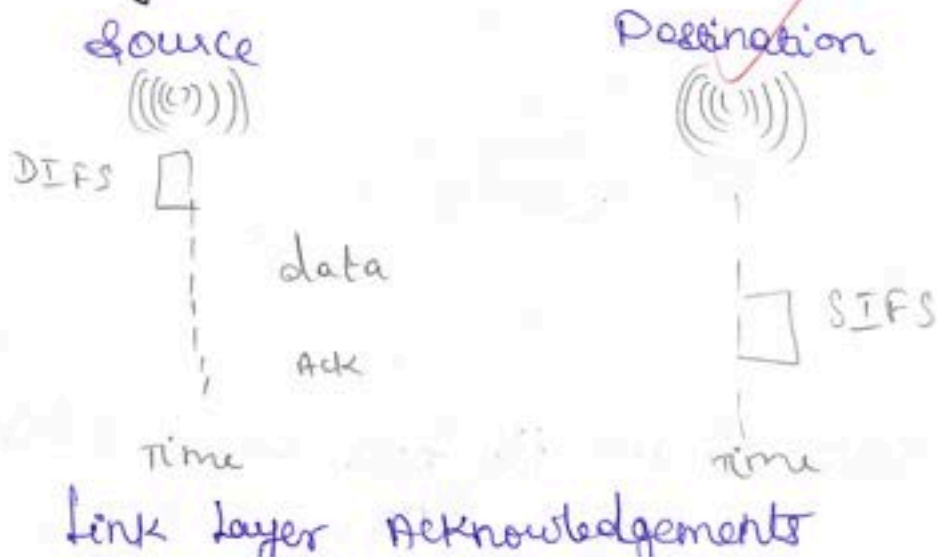 Source Destination
DIFS
data
SIFS
Ack
Time Time
Link Layer Acknowledgements